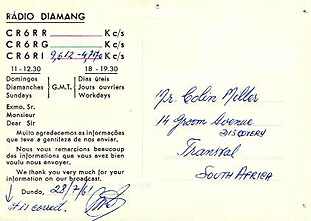 RÁDIO DIAMANG
CR6RR Kc/s
CR6RG Kc/s
CR6RI 9,612 - 4,770 Kc/s
11-12.30 18-19.30
Domingos Dias úteis
Diamanches G.M.T. Jours ouvriers
Sundays Workdays
Exmo. Sr.
Monsieur
Dear Sir
Muito agradecemos as informações
que teve a gentileza de nos enviar.
Nous vous remercions beaucoup
des informations que vous avez bien
voulu nous envoyer.
We thank you very much for your
information on our broadcast.
Dundo, 28/7/61
It is correct.
Mr. Colin Miller
14 Groom Avenue
DISCOVERY
Transval
SOUTH AFRICA